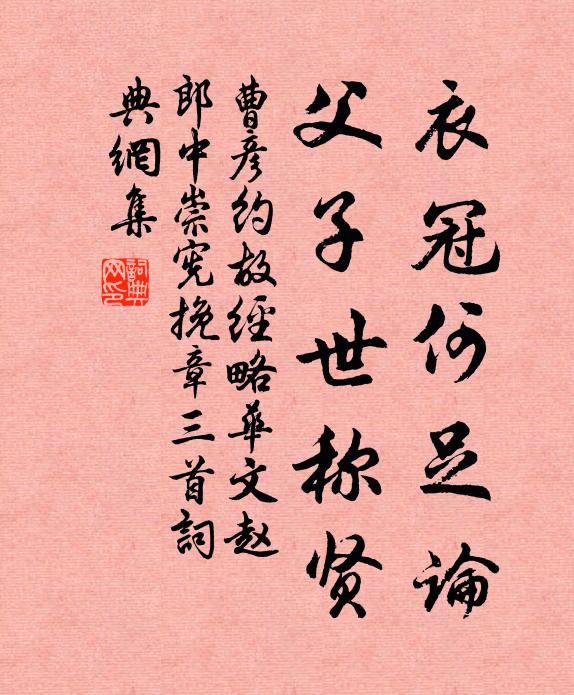 衣冠何足论
父子世称贤
曹彦约故经略华文赵
郎中崇宪挽章三首词
典网集
词典网印